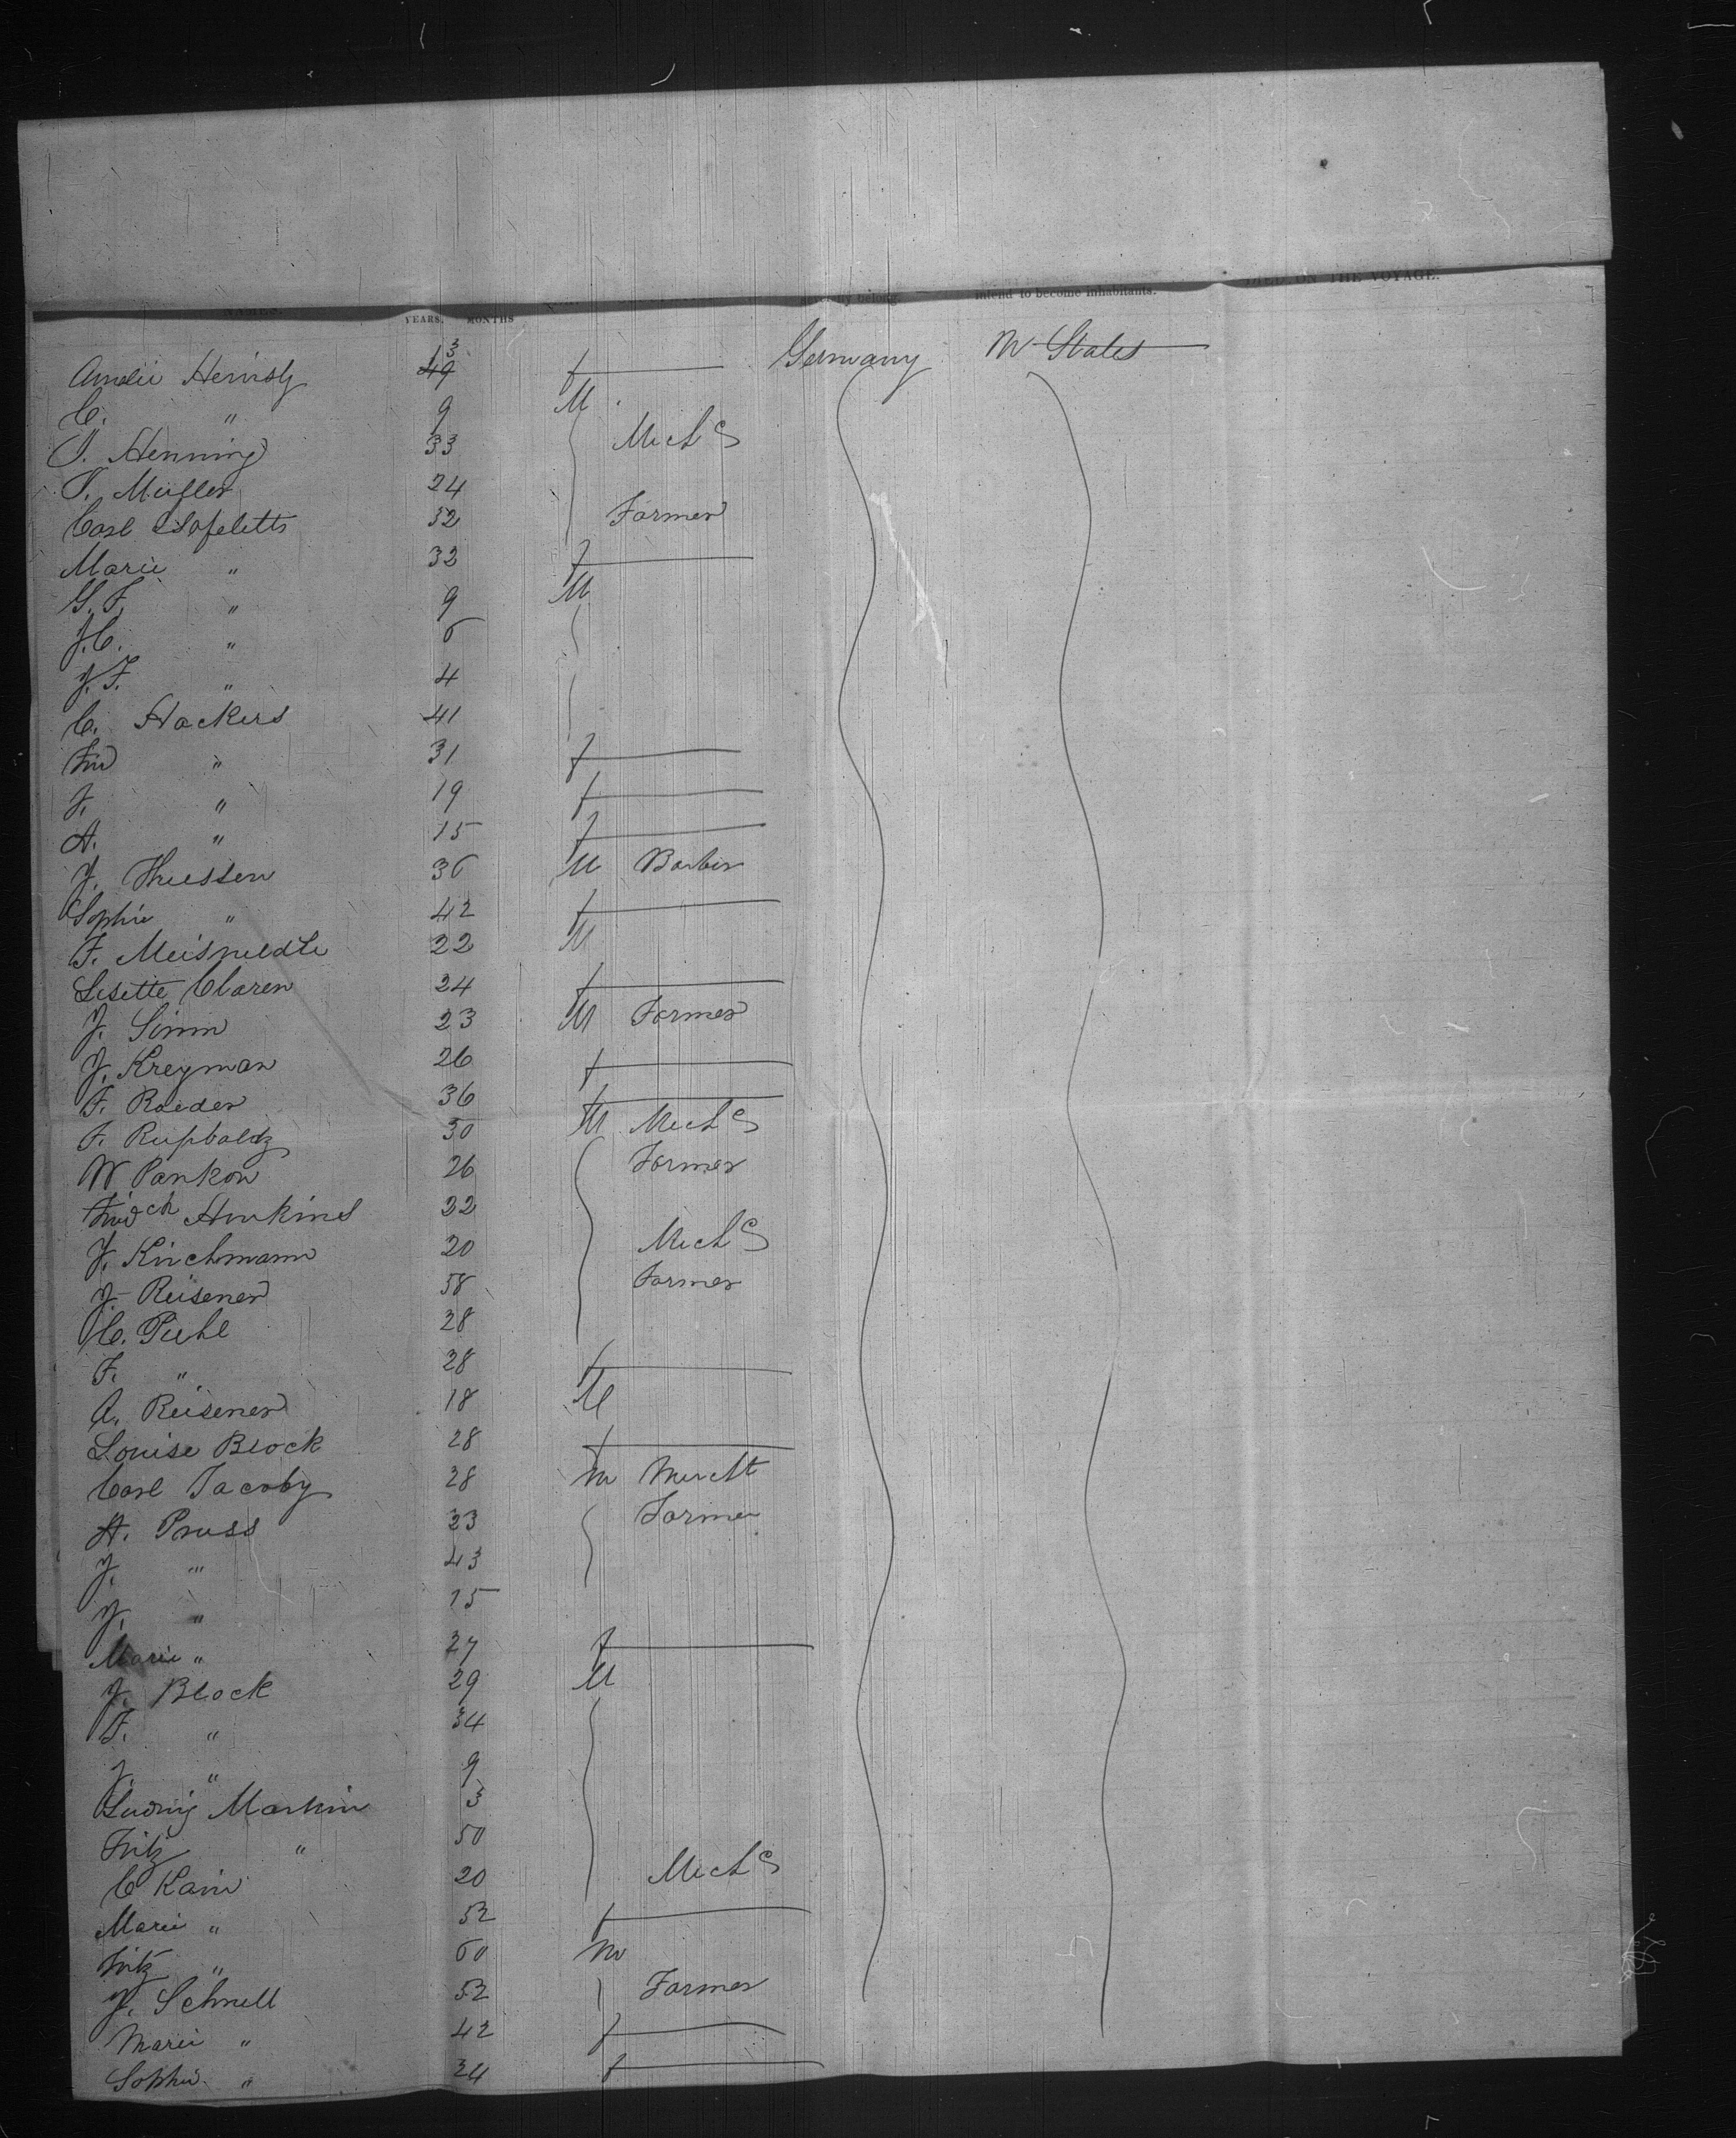 NAMES. YEARS. MONTHS belong. intend to become inhabitants. ON THE VOYAGE.
Amelie 13 49 f Germany States
C. " 9 M
J. Henning 33 Mechc
F. Müller 24
Carl 32 Farmer
Marie " 32 f
G. F. " 9 M
J. C. " 6
J. F. " 4
C. Hackers 41
" 31 f
F. " 19 f
A. " 15 f
J. Thiessen 36 M Barber
Sophie " 42 f
F. 22 M
Lisette Claren 24 f
J. Simm 23 M Farmer
J. Kreyman 26 f
F. Roeder 36 f
F. 30 M Mechc
W Pankow 26 Farmer
22
J. Kirchmann 20 Mechc
J. Reisener 58 Farmer
C. Piehl 28
F. " 28 f
A. Reisener 18 M
Louise Block 28 f
Carl Jacoby 28 m Mercht
A. Pruss 23 Farmer
J. " 43
J. " 15
Marie " 27 f
J. Block 29 M
F. " 34
J. " 9
Ludwig 3
Fritz " 50
C Kain 20 Mechc
Marie " 52 f
Fritz " 60 m
J. Schnell 52 Farmer
Marie " 42 f
Sophie " 24 f